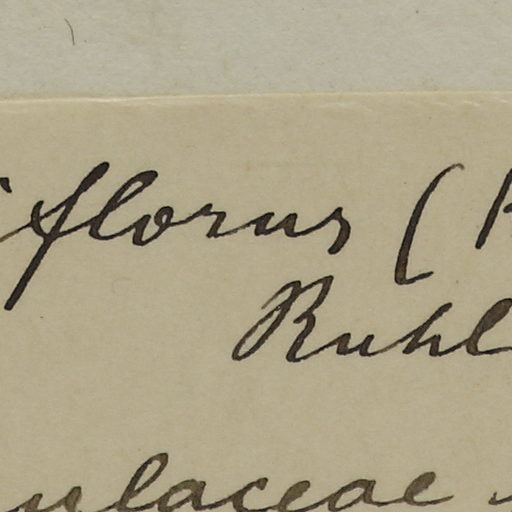 iflorus (
Ruhl
ulaceae